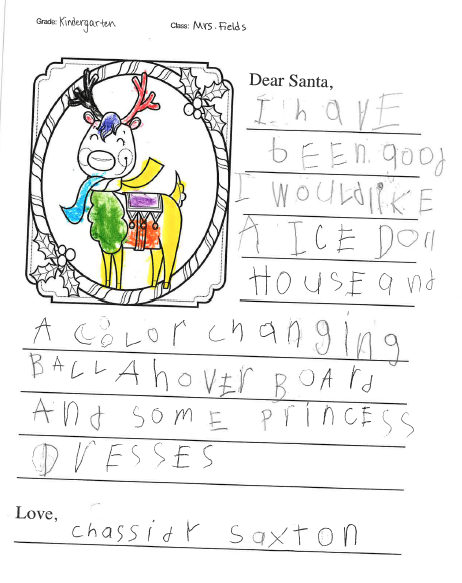 Grade: Kindergarten Class: Mrs. Fields
Dear Santa,
I have
bEEn good
I WOULdlikE
A ICE Doll
HOUSE and
A COLOr changing
BALL A hovEr BOArd
And SomE princESS
DrESSES
Love, chassidr Saxton